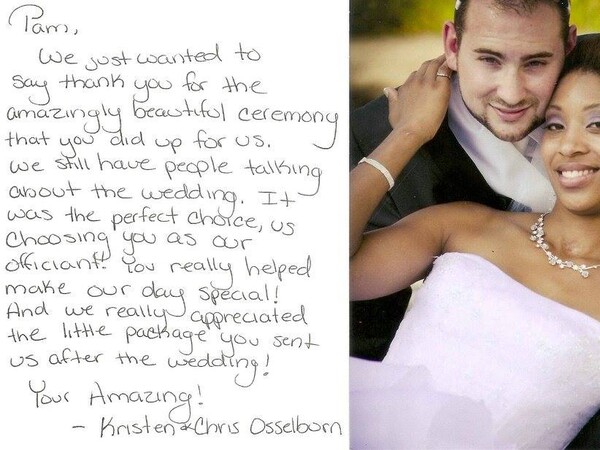 Pam,
We just wanted to
say thank you for the
amazingly beautiful ceremony
that you did up for us.
We still have people talking
about the wedding. It
was the perfect choice, us
choosing you as our
officiant! You really helped
make our day special!
And we really appreciated
the little package you sent
us after the wedding!
Your Amazing!
- Kristen & Chris Osselborn